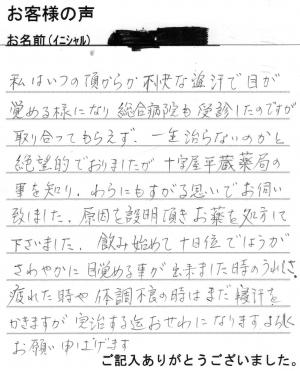 お客様の声
お名前(イニシャル)
私はいつの頃からか不快な盗汗で目が
覚める様になり総合病院も受診したのですが
取り合ってもらえず、一生治らないのかと
絶望的でおりましたが十字屋平蔵薬局の
事を知り、わらにもすがる思いでお伺い
致しました、原因を説明頂きお薬を処方して
下さいました、飲み始めて十日位でしょうが
さわやかに目覚める事が出来ました時のうれしさ。
疲れた時や体調不良の時はまだ寝汗を
かきますが完治する迄おせわになりますよろしく
お願い申し上げます
ご記入ありがとうございました。